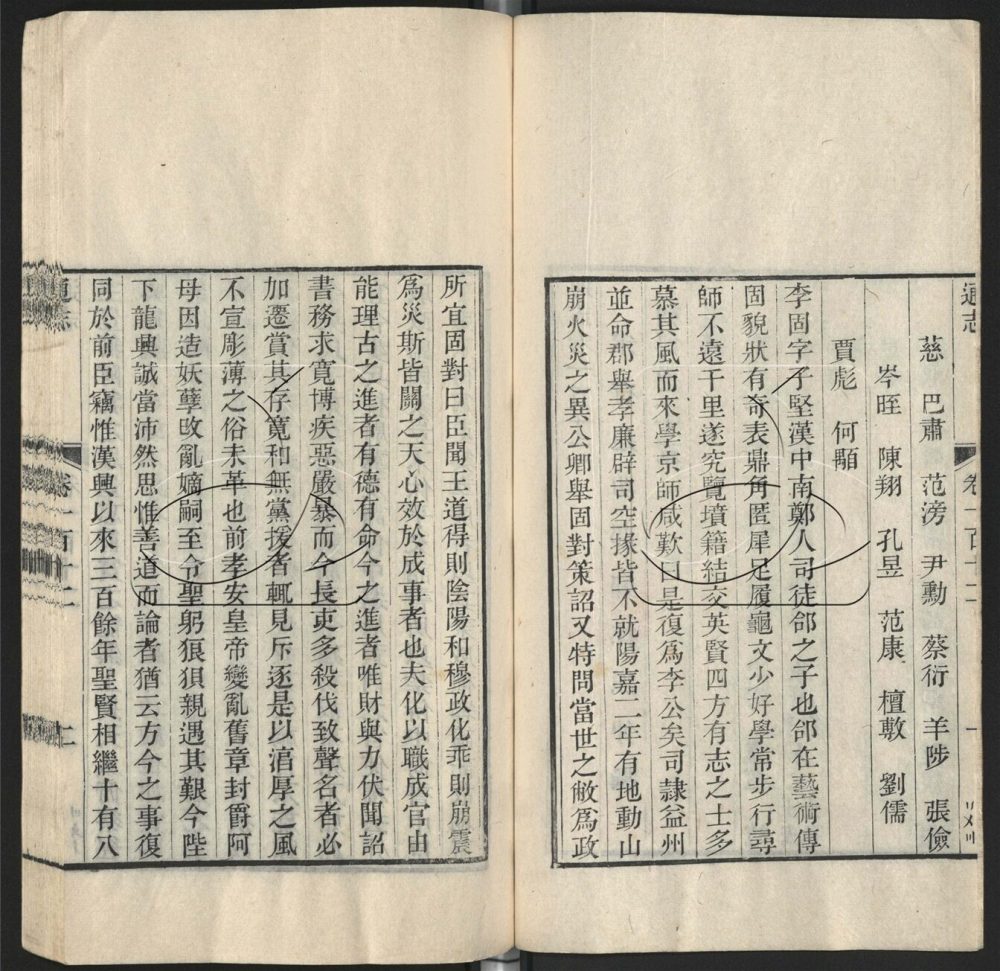 通志
卷一百十二
一
慈 巴肅 范滂 尹勳 蔡衍 羊陟 張儉
岑晊 陳翔 孔昱 范康 檀敷 劉儒
賈彪 何顒
李固字子堅漢中南鄭人司徒郃之子也郃在藝術傳
固貌狀有奇表鼎角匿犀足履龜文少好學常步行尋
師不遠千里遂究覽墳籍結交英賢四方有志之士多
慕其風而來學京師咸歎曰是復爲李公矣司隷益州
並命郡舉孝廉辟司空掾皆不就陽嘉二年有地動山
崩火災之異公卿舉固對策詔又特問當世之敝爲政
所宜固對曰臣聞王道得則陰陽和穆政化乖則崩震
爲災斯皆關之天心效於成事者也夫化以職成官由
能理古之進者有德有命今之進者唯財與力伏聞詔
書務求寬博疾惡嚴暴而今長吏多殺伐致聲名者必
加遷賞其存寬和無黨援者輒見斥逐是以淳厚之風
不宣彫薄之俗未革也前孝安皇帝變亂舊章封爵阿
母因造妖孽攺亂嫡嗣至令聖躬狼狽親遇其艱今陛
下龍興誠當沛然思惟善道而論者猶云方今之事復
同於前臣竊惟漢興以來三百餘年聖賢相繼十有八
通志
卷一百十二
二